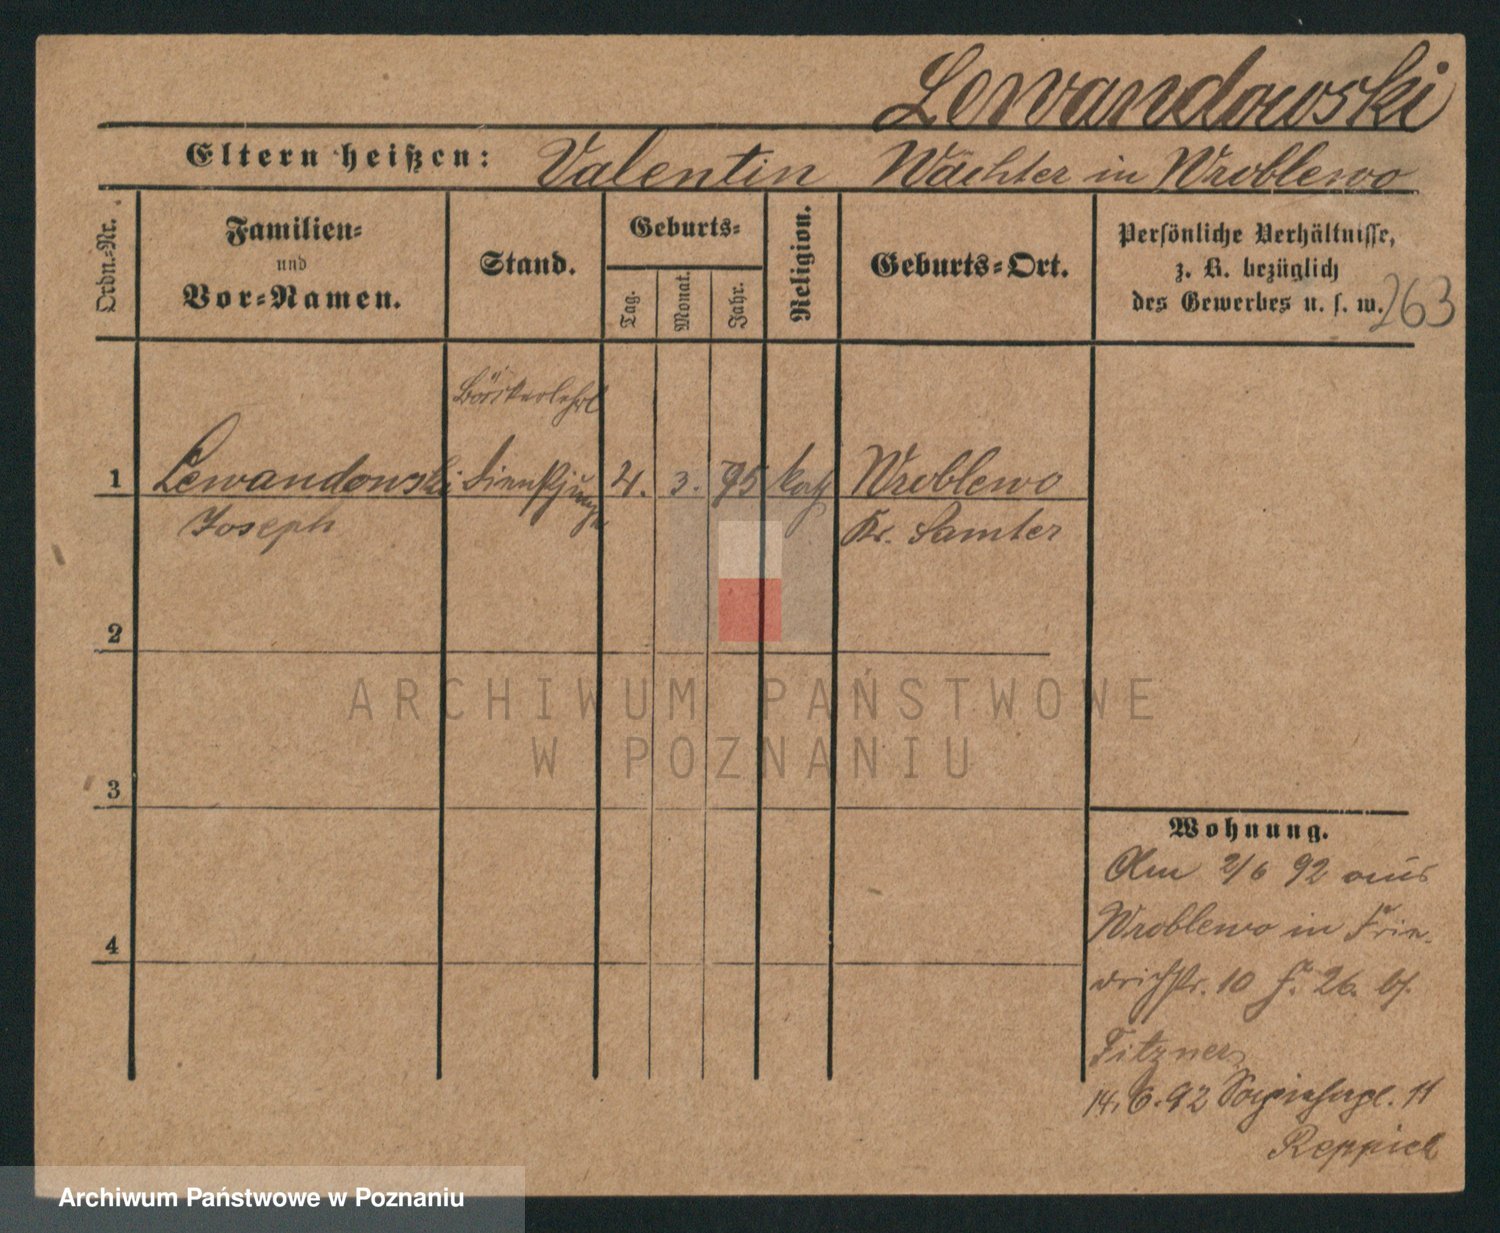 Lewandowski
Eltern heißen: Valentin Wächter in Wroblewo
Ordn.-Nr.
Familien-
und
Vor-Namen.
Stand.
Geburts-
Tag.
Monat.
Jahr.
Religion.
Geburts-Ort.
Persönliche Verhältnisse,
z. B. bezüglich
des Gewerbes u. s. w.
263
1 Lewandowski Dienstjunge 4. 3. 75 kath Wroblewo
Joseph Kr. Samter
2
ARCHIWUM PAŃSTWOWE
W POZNANIU
3
Wohnung.
Am 2/6 92 aus
Wroblewo in Frie-
drichstr. 10 26. bei
Fitzner
14. 6. 92 11
Reppich
4
Archiwum Państwowe w Poznaniu